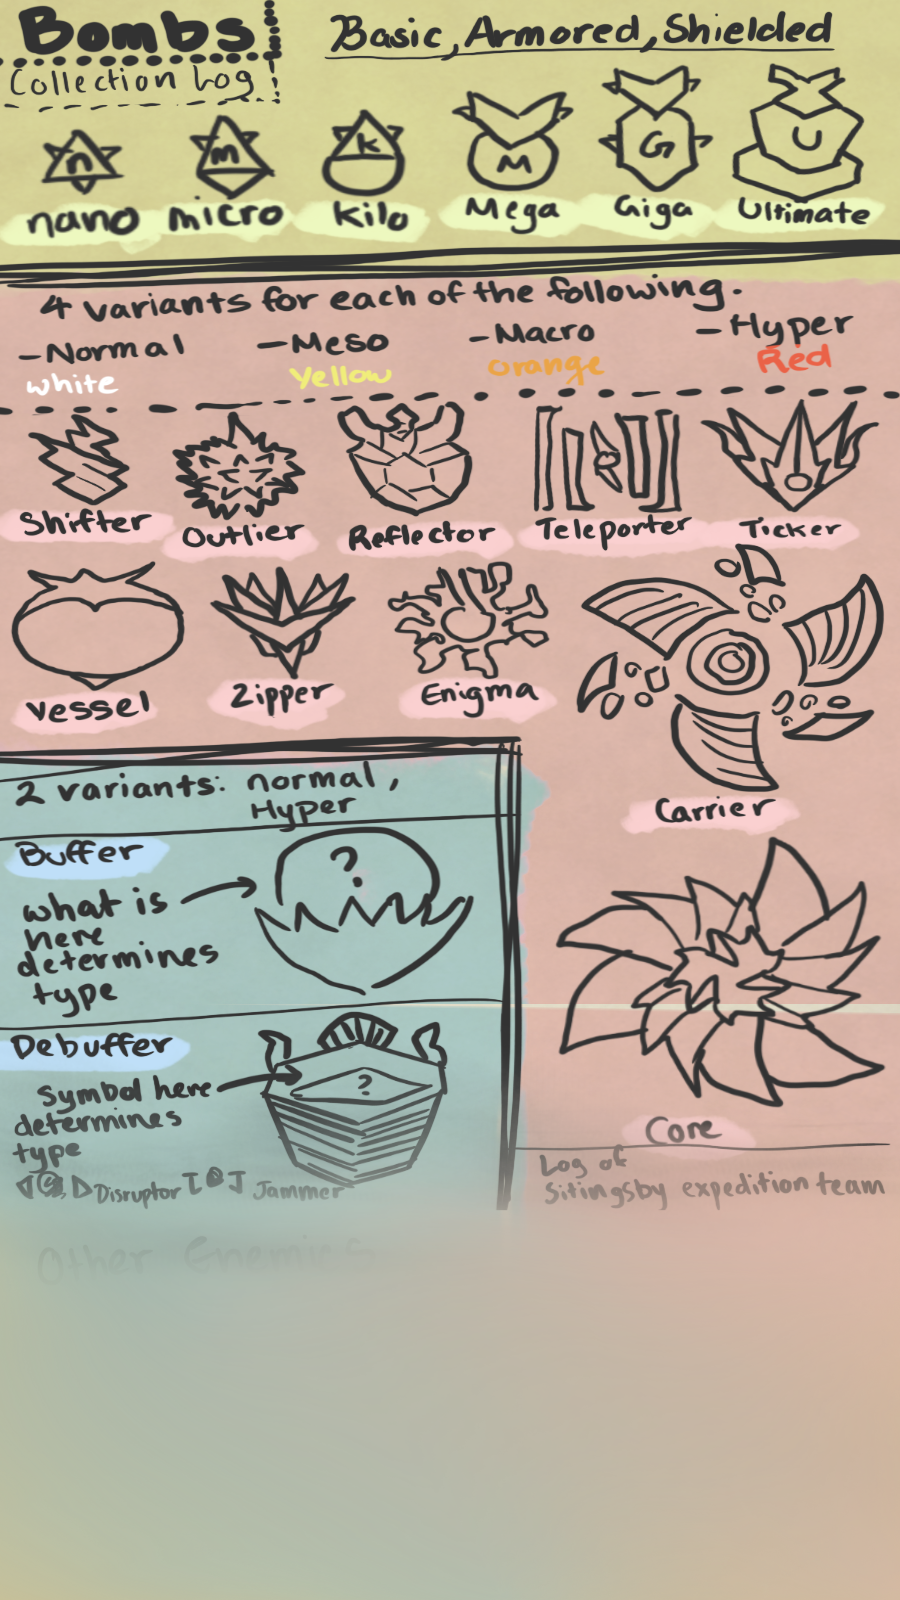 Bombs
Collection Log
Basic, Armored, Shielded
n
m
k
M
G
U
nano
micro
kilo
Mega
Giga
Ultimate
4 variants for each of the following.
-Normal
white
-Meso
Yellow
-Macro
orange
-Hyper
Red
Shifter
Outlier
Reflector
Teleporter
Ticker
Vessel
Zipper
Enigma
Carrier
2 variants: normal,
Hyper
Buffer
what is
here
determines
type
?
Debuffer
symbol here
determines
type
?
Disruptor
Jammer
Core
Log of
Sitingsby expedition team
Other Enemies